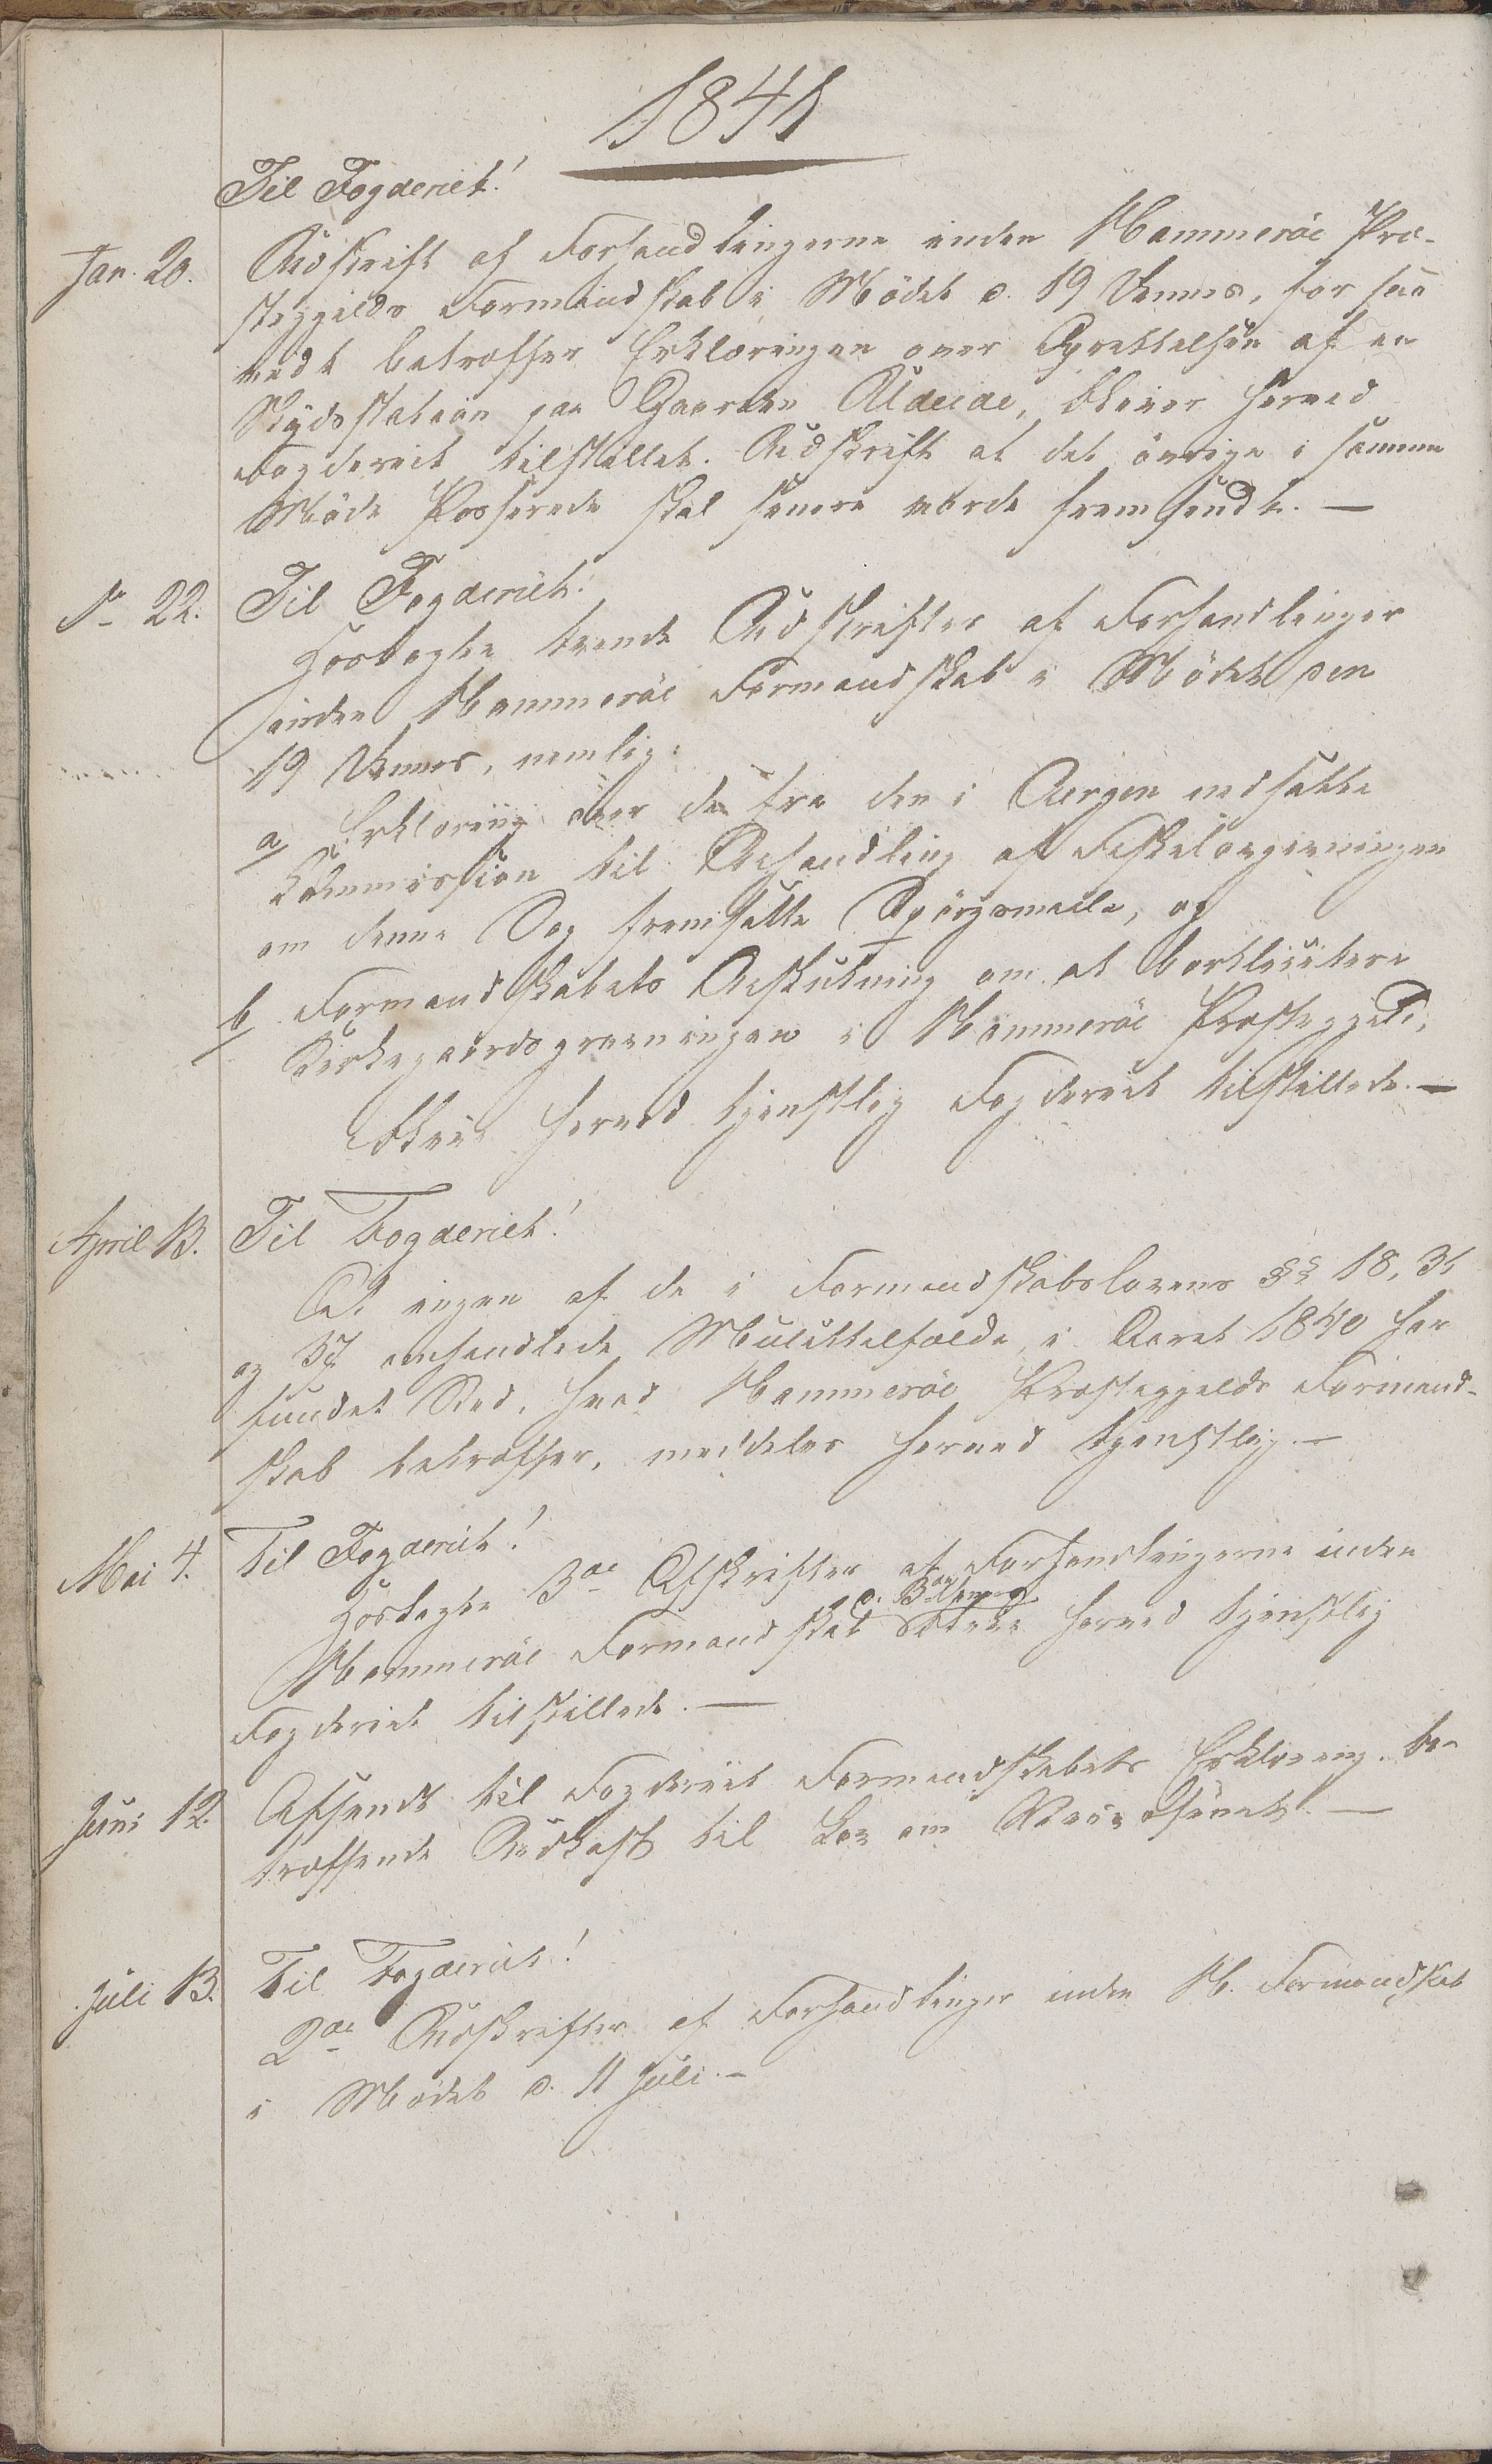 1841
Til Fogderiet!
Jan. 20. Udskrift af Forhandlingerne inden Hammeröe Præ-
stegjelds Formandskab i Mödet d. 19 dennes, for saa
vidt betræffer Erklæringen over Oprettelsen af en
Skydsstation paa Gaarden Uldeide, bliver herved
Fogderiet tilstillet. Udskrift af det övrige i samme
Möde Passerede skal senere vorde fremsendt. —
D_ 22. Til Fogderiet.
Hoslagte trende Udskrifter af Forhandlinger
inden Hammeröe Formandskab i Mödet den
19 dennes, nemlig:
a/ Erklæring over de fra den i Bergen nedsatte
Commission til Behandling af Fiskelovgivningen
om denne Sag fremsatte Spörgsmaale, og
b/ Formandskabets Beslutning om at bortlicitere
Kirkegaardsgravningen i Hammeröe Præstegjeld;
blive herved tjenstlig Fogderiet tilstillede. —
April 13. Til Fogderiet!
At ingen af de i Formandskabslovens §§ 18, 31
og 37 omhandlede Mulcttilfælde, i Aaret 1840 har
fundet Sted, hvad Hammeröe Præstegjelds Formand-
skab betræffer, meddeles herved tjenstlig. —
Mai 4. Til Fogderiet!
Hoslagte 3de Afskrifter af Forhandlingerne inden
Hammeröe Formandskab d. 3die dennes blive herved tjenstlig
Fogderiet tilstillede. —
Juni 12. Afsendt til Fogderiet Formandskabets Erklæring be-
træffende Udkast til Lov om —
Juli 13. Til Fogderiet!
2de Udskrifter af Forhandlinger inden H. Formandskab
i Mödet d. 11 Juli. —